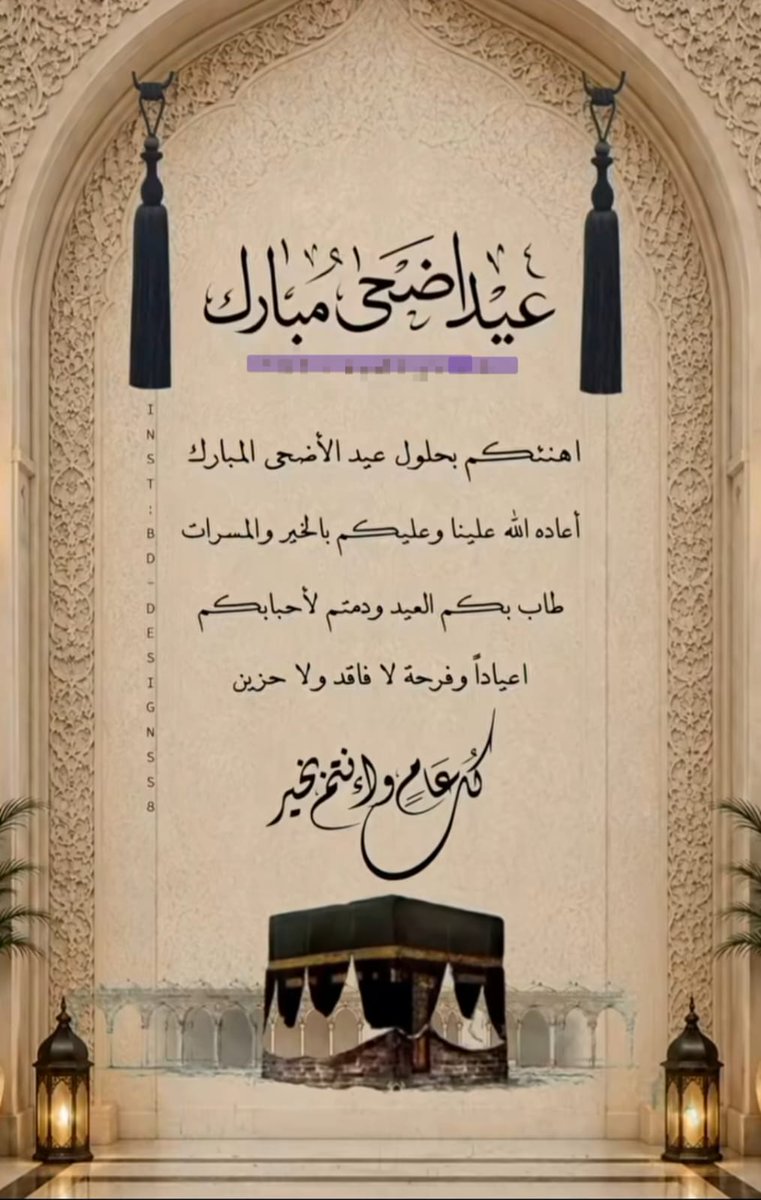 عيد اضحى مبارك
اهنئكم بحلول عيد الأضحى المبارك
أعاده الله علينا وعليكم بالخير والمسرات
طاب بكم العيد ودمتم لأحبابكم
اعياداً وفرحة لا فاقد ولا حزين
كل عام وانتم بخير
INST:BD-DESIGNSS8